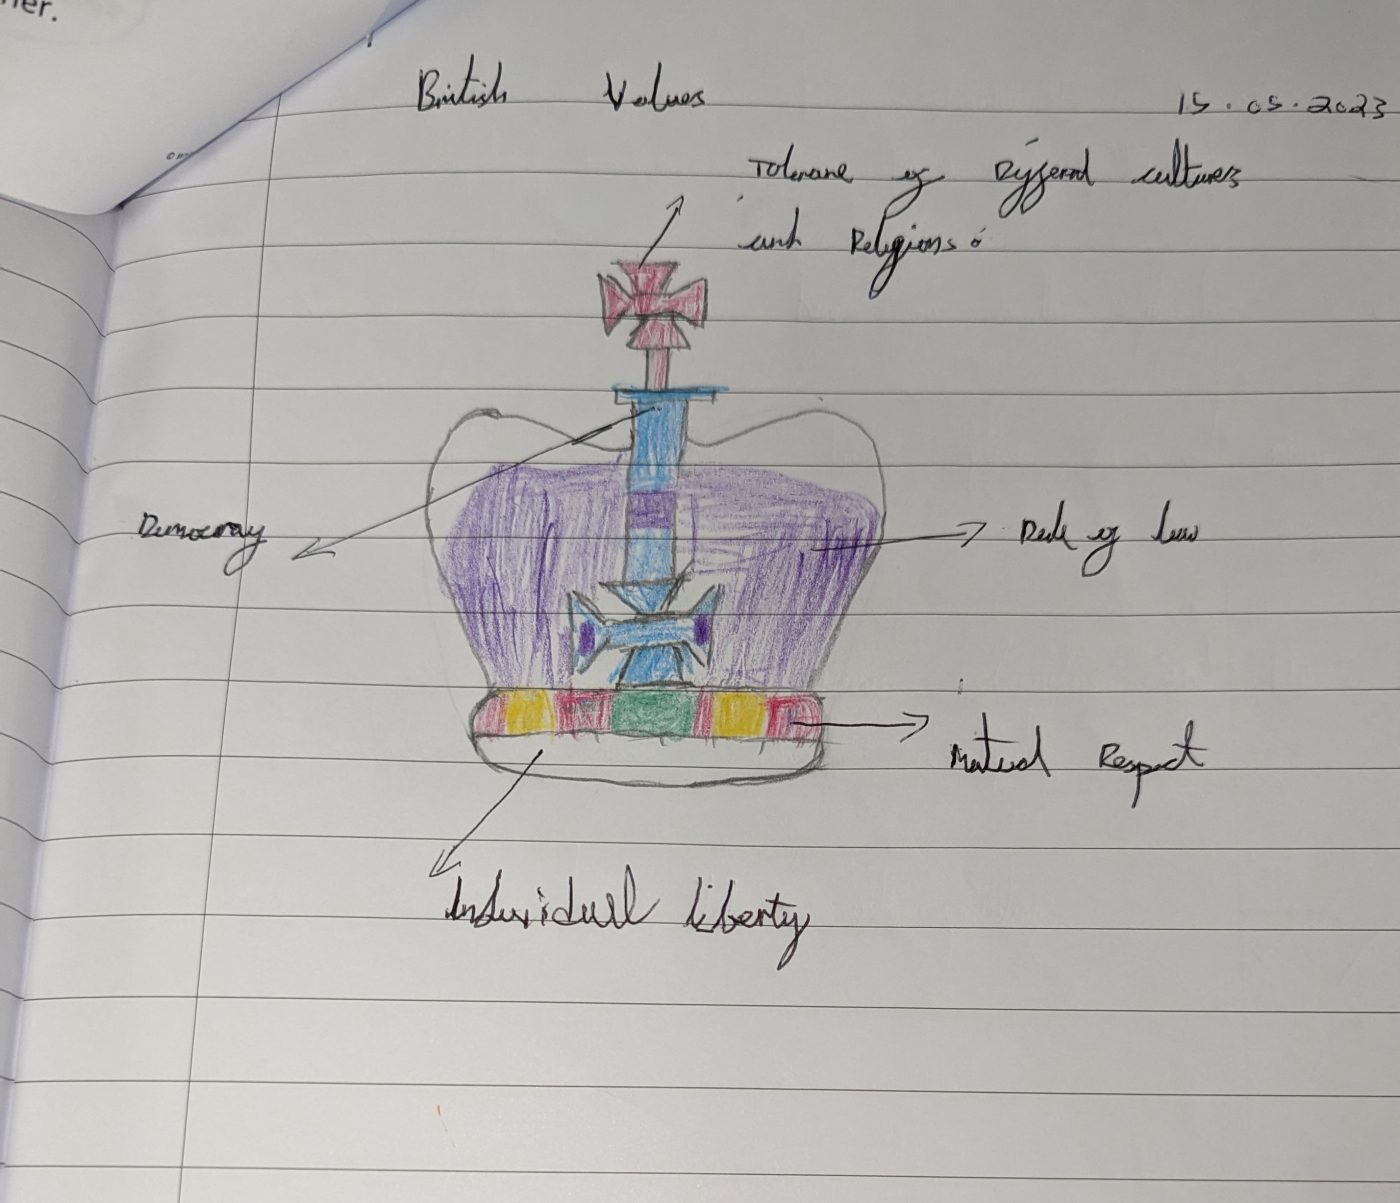 ner.
British Values
15.05.2023
Tolerane of Different cultures
and Religions
Democray
Rule of law
Mutual Respect
Individuel liberty